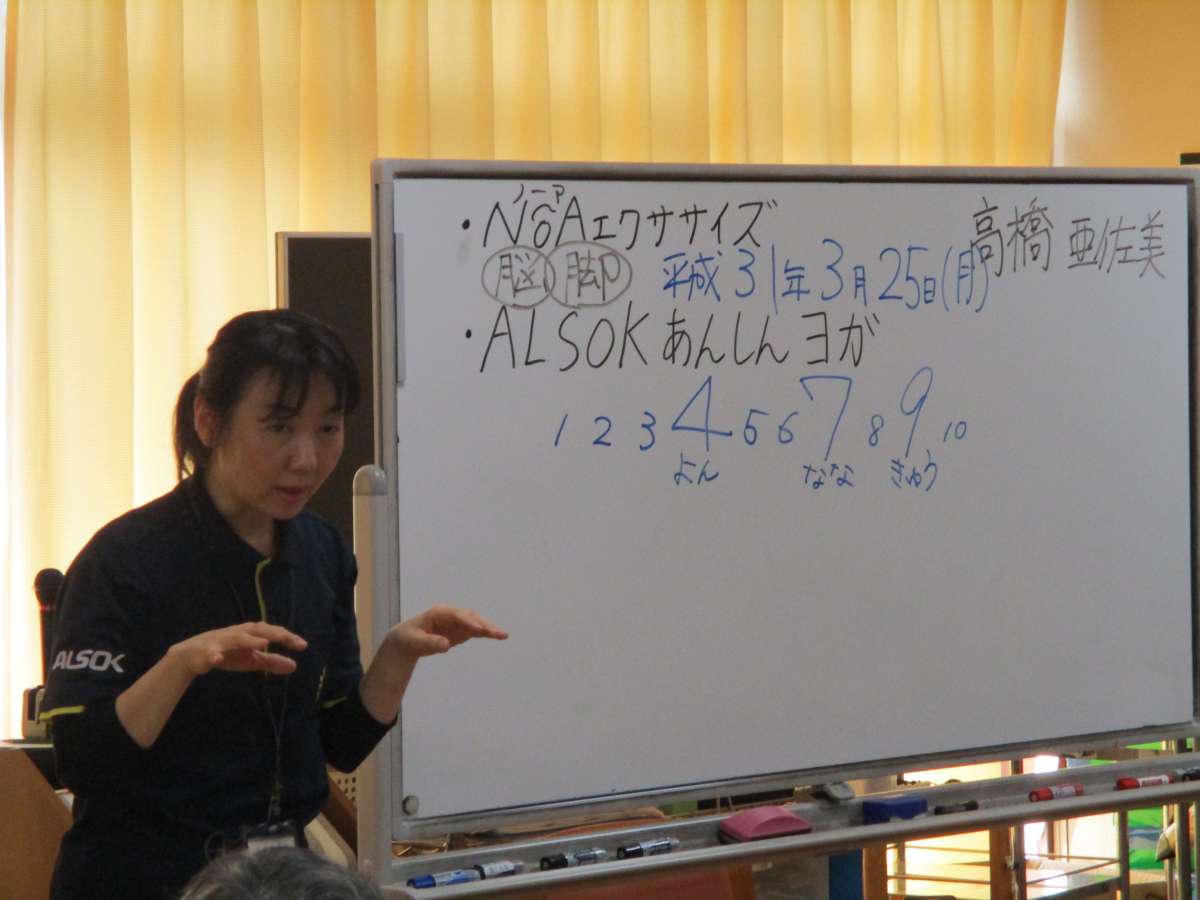 ノーア
・NöAエクササイズ
高橋 亜佐美
脳 脚 平成31年3月25日(月)
・ALSOK あんしんヨガ
1 2 3 4 5 6 7 8 9 10
よん なな きゅう
ALSOK